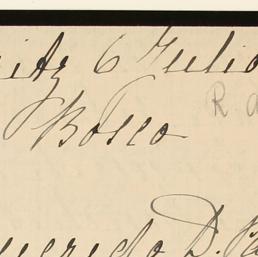 6 Julio
R. a
Bosco
querido D.